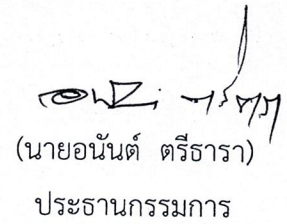 (นายอนันต์ ตรีธารา)
ประธานกรรมการ